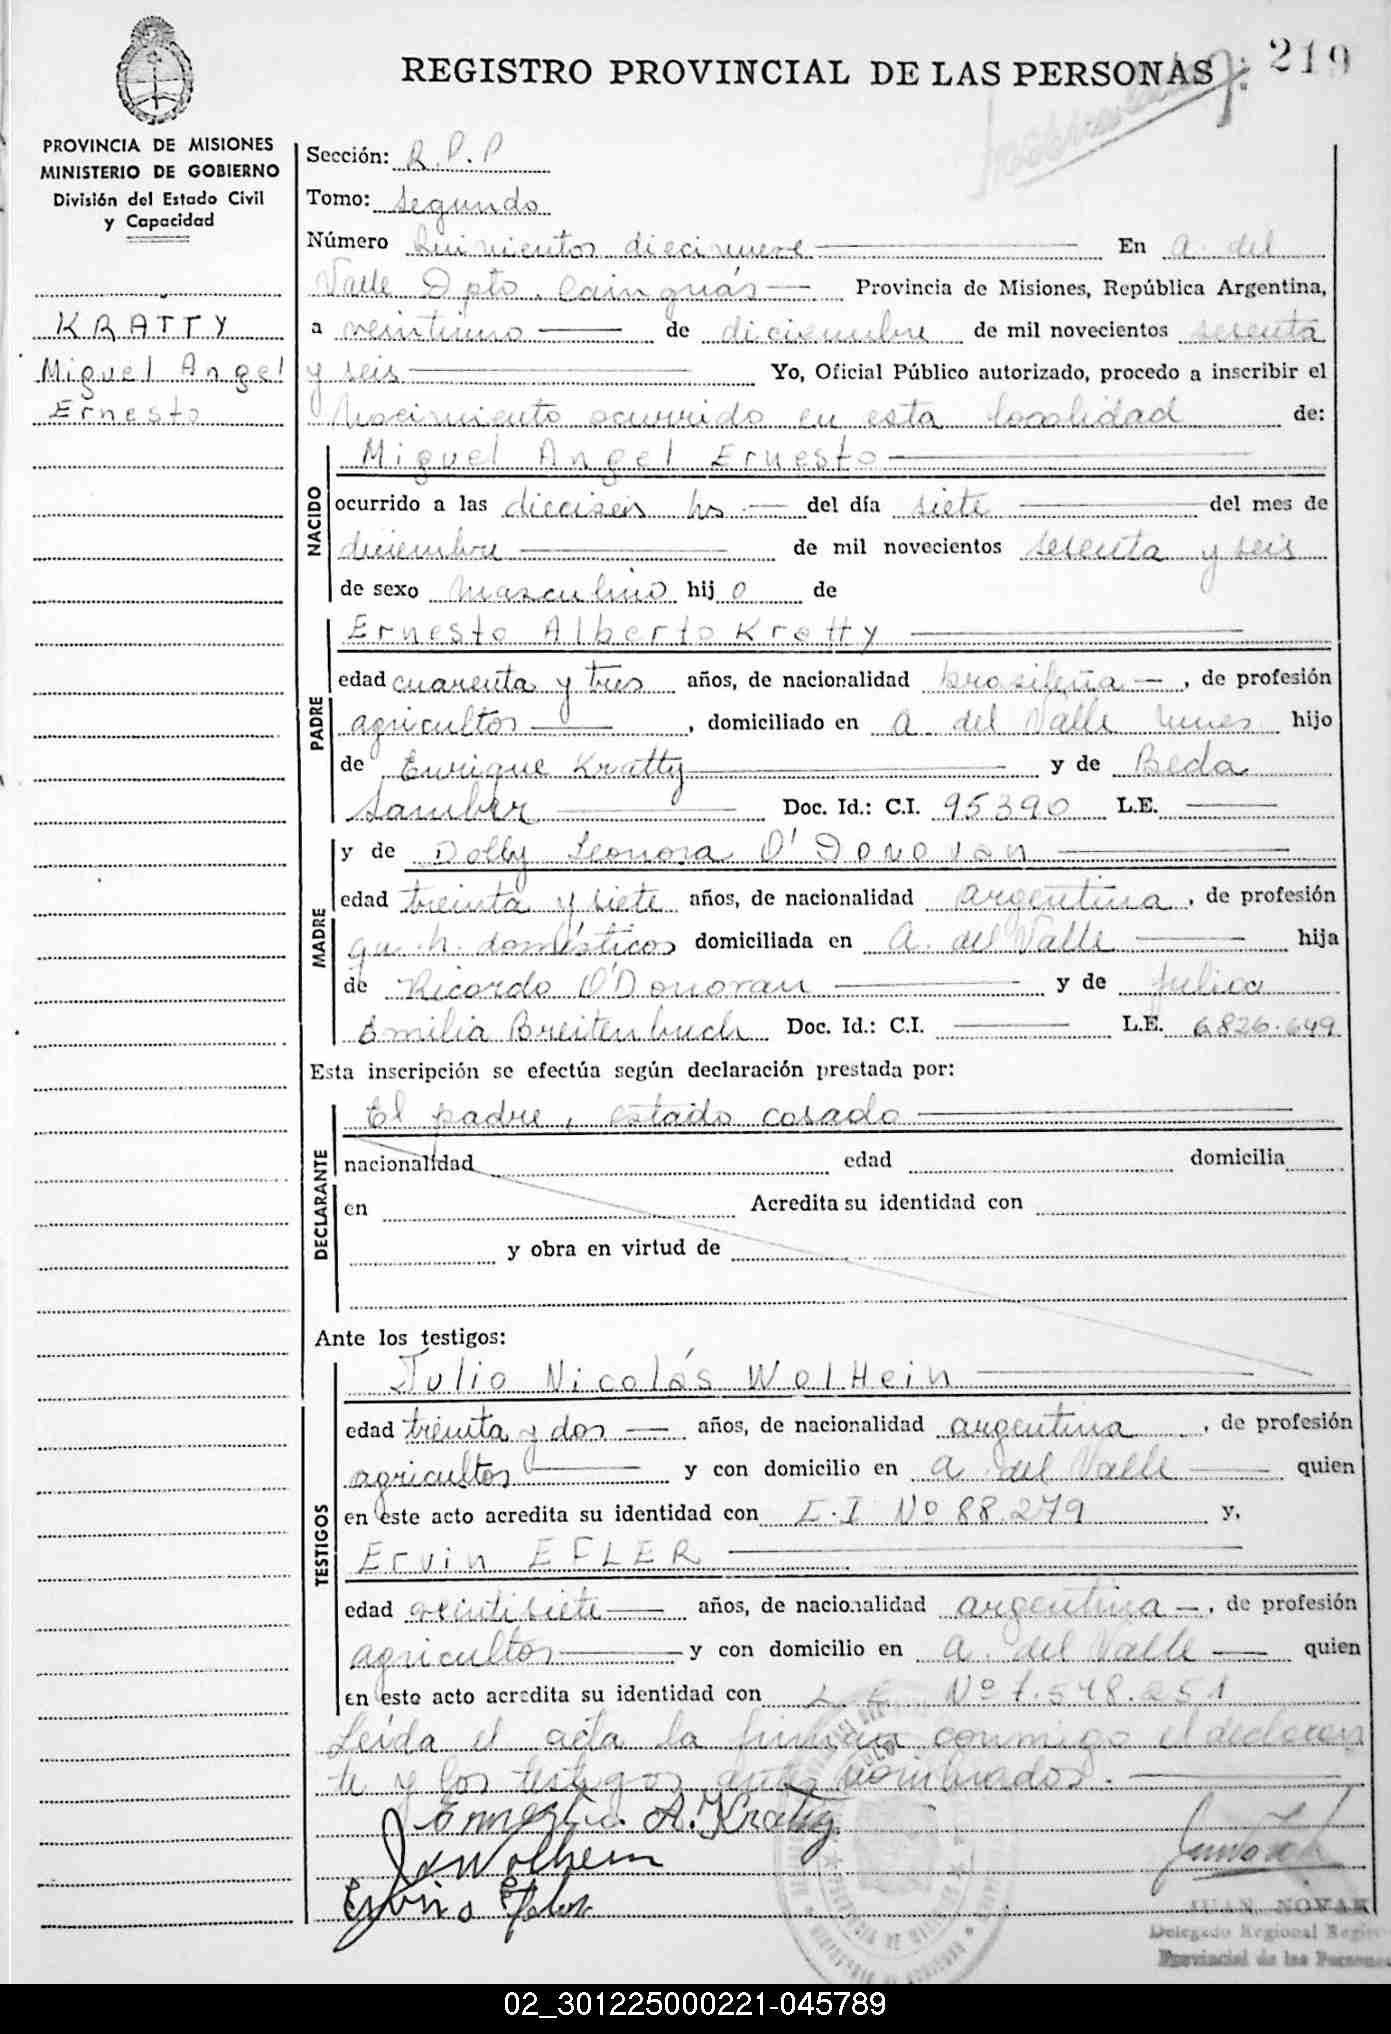 REGISTRO PROVINCIAL DE LAS PERSONAS
219
PROVINCIA DE MISIONES
MINISTERIO DE GOBIERNO
División del Estado Civil
y Capacidad
KRATTY
Miguel Angel
Ernesto
Sección: R.P.P
Tomo: segundo
Número Quinientos diecinueve En A. del
Valle Dpto. Cainguás Provincia de Misiones, República Argentina,
a veintiuno de diciembre de mil novecientos sesenta
y seis Yo, Oficial Público autorizado, procedo a inscribir el
Nacimiento ocurrido en esta localidad de:
NACIDO
Miguel Angel Ernesto
ocurrido a las dieciseis hs del día siete del mes de
diciembre de mil novecientos sesenta y seis
de sexo masculino hijo de
PADRE
Ernesto Alberto Kratty
edad cuarenta y tres años, de nacionalidad brasileña, de profesión
agricultor, domiciliado en A. del Valle hijo
de Enrique Kratty y de Beda
Samber Doc. Id.: C.I. 95390 L.E.
MADRE
y de Dolly Leonora O'Donovan
edad treinta y siete años, de nacionalidad argentina, de profesión
qu. h. domésticos domiciliada en A. del Valle hija
de Ricardo O'Donovan y de Julia
Emilia Breitenbuch Doc. Id.: C.I. L.E. 6826.649
Esta inscripción se efectúa según declaración prestada por:
DECLARANTE
El padre, estado casado
nacionalidad edad domicilia
en Acredita su identidad con
y obra en virtud de
Ante los testigos:
TESTIGOS
Julio Nicolás WolHein
edad treinta y dos años, de nacionalidad argentina, de profesión
agricultor y con domicilio en A. del Valle quien
en este acto acredita su identidad con C.I Nº 88.279 y,
Ervin EFLER
edad veintisiete años, de nacionalidad argentina, de profesión
agricultor y con domicilio en A. del Valle quien
en este acto acredita su identidad con L.E. Nº 7.548.251
Leída el acta la firman conmigo el declaran
te y los testigos antes nombrados.
Ernesto A. Kratty
J N Wolhein
Ervino Efler
JUAN NOVAK
Delegado Regional Registro
Provincial de las Personas
02_301225000221-045789